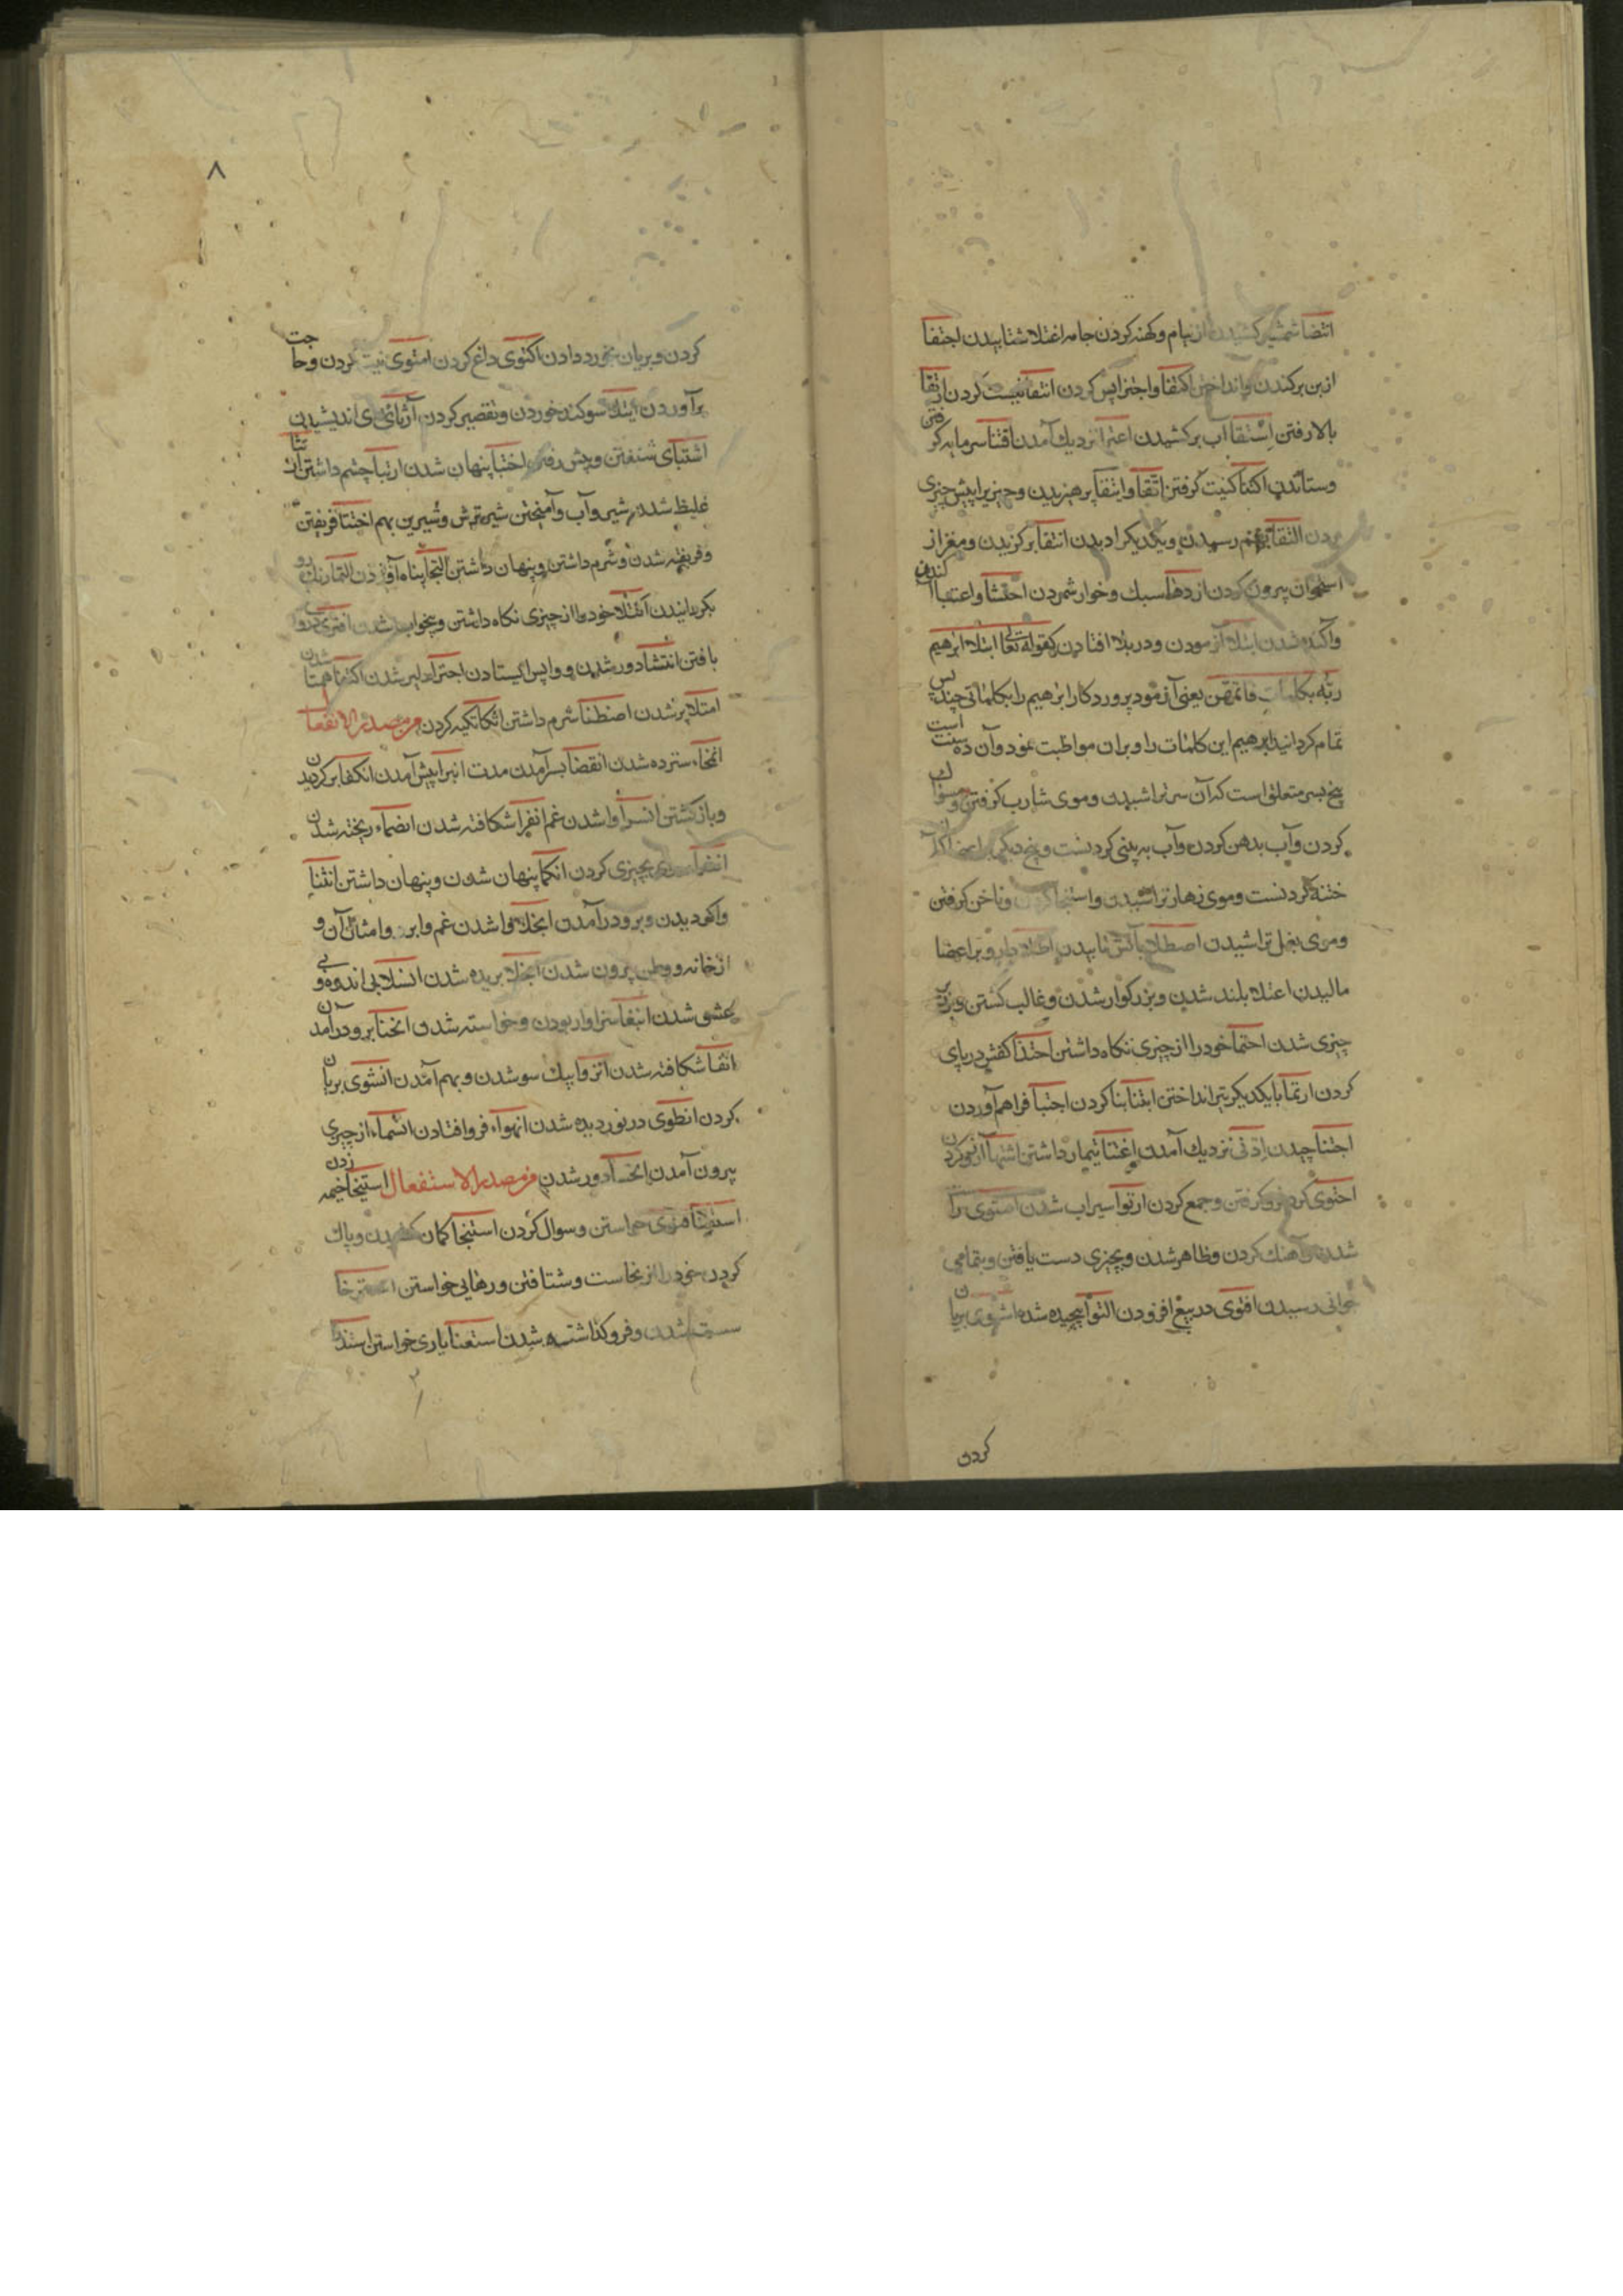 انتضا شمشیر کشیدن از نیام و کهنه کردن جامه اغتلا شتابیدن اجتفا
از بن برکندن و انداختن اکتفا و اجتزا بس کردن انتفا نیست کردن ارتقا
بالا رفتن استقا آب برکشیدن اعترا نزدیک آمدن اقتنا سرمایه گرفتن
و ستاندن اکتنا کنیت گرفتن اتقا و ابتقا پرهیزیدن و چیزیرا پیش چیزی
بردن التقا بهم رسیدن و یکدیگر را دیدن انتقا برگزیدن و مغز از
استخوان بیرون کردن ازدها سبک و خوار شمردن احتشا و اعتبا کندن
وآکنده شدن ابتلا آزمودن و در بلا افتادن کقوله تعالی ابتلا ابرهیم
ربّه بکلمات فاتمهن یعنی آزمود پروردکار ابرهیم را بکلماتی چند پس
تمام کردانید ابرهیم این کلمات را و بران مواظبت نمود وآن ده سنت است
پنج بسر متعلق است که آن سر تراشیدن و موی شارب کرفتن و مسواک
کردن و آب بدهن کردن و آب به بینی کردنست و پنج دیگر
ختنه کردنست و موی زهار تراشیدن و استنجا کردن و ناخن کرفتن
و موی بغل تراشیدن اصطلا بآتش تابیدن اطلا دارو بر اعضا
مالیدن اعتلا بلند شدن و بزرکوار شدن و غالب کشتن و بر
چیزی شدن احتما خود را از چیزی نکاه داشتن احتذا کفش در پای
کردن ارتما با یکدیکر تیر انداختن ابتنا بنا کردن اجتبا فراهم آوردن
اجتنا چیدن ادّنی نزدیک آمدن اعتنا تیمار داشتن اشتها آرزو کردن
احتوی کرد فرو کرفتن و جمع کردن ارتوا سیراب شدن استوی را
شدن و آهنک کردن و ظاهر شدن و بچیزی دست یافتن و بتمامی
جوانی رسیدن افتوی در بیع افزودن التوا پیچیده شدن اشتوی بریان
کردن
۸
کردن و بریان بخورد دادن اکتوی داغ کردن انتوی نیت کردن و حاجت
برآوردن ایتلا سوکند خوردن و تقصیر کردن آرتائی اندیشیدن
اشتبای شنفتن و پیش رفتن اختبا پنهان شدن ارتبا چشم داشتن ارتثا
غلیظ شدن شیر و آب و آمیختن شیر ترش و شیرین بهم اختتا فریفتن
و فریفته شدن و شرم داشتن و پنهان داشتن التجا پناه آوردن التما رنک رو
بکردانیدن اکتلا خود را از چیزی نکاه داشتن و بیخواب شدن
یافتن انتشا دور شدن و واپس ایستادن اجترا دلیر شدن اکتفا همتا شدن
امتلا پر شدن اضطنا شرم داشتن اتکا تکیه کردن من مصدر الانفعال
انمحاء سترده شدن انقضا بسر آمدن مدت انبرا پیش آمدن انکفا برکردیدن
و باز کشتن انسرا وا شدن غم انفرا شکافته شدن انصماء ریخته شدن
چیزی کردن انکما پنهان شدن و پنهان داشتن انثنا
واکردیدن و برو درآمدن انجلا وا شدن غم و ابر و امثال آن و
از خانه و وطن بیرون شدن انجلا بریده شدن انسلا بی اندوه و بی
عشق شدن انبغا سزاوار بودن و خواسته شدن انحنا برو درآمدن
انفا شکافته شدن انزوا بیک سو شدن و بهم آمدن انشوی بریان
کردن انطوی در نوردیده شدن انهواء فرو افتادن انشماء از چیزی
بیرون آمدن انخسا دور شدن من مصدر الاستفعال استخبا خیمه زدن
استفتا فتوی خواستن و سوال کردن استنجا کمان و پاک
کردن خود را از نجاست و شتافتن و رهایی خواستن استرخا
سست شدن و فرو کذاشته شدن استعنا یاری خواستن